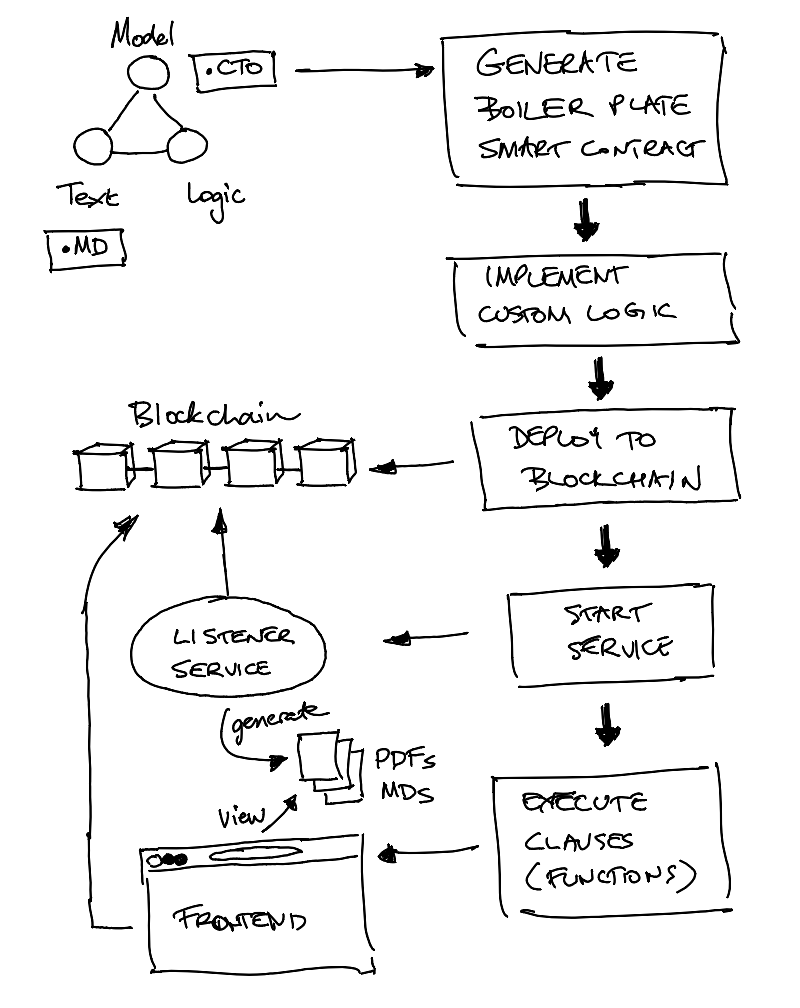 Model
.CTO
Text
Logic
.MD
GENERATE
BOILER PLATE
SMART CONTRACT
IMPLEMENT
CUSTOM LOGIC
DEPLOY TO
BLOCKCHAIN
Blockchain
START
SERVICE
LISTENER
SERVICE
generate
PDFs
MDs
View
EXECUTE
CLAUSES
(FUNCTIONS)
FRONTEND